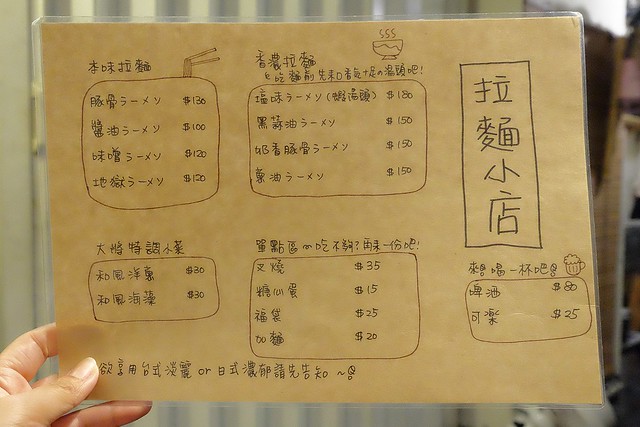 拉麵小店
本味拉麵
豚骨ラーメン $130
醬油ラーメン $100
味噌ラーメン $120
地獄ラーメン $120
香濃拉麵
吃麵前先來口香氣十足の湯頭吧!
塩味ラーメン(蝦湯頭) $180
黑蒜油ラーメン $150
奶香豚骨ラーメン $150
蔥油ラーメン $150
大將特調小菜
和風洋蔥 $30
和風海藻 $30
單點區~吃不夠?再來一份吧!
叉燒 $35
糖心蛋 $15
福袋 $25
加麵 $20
來喝一杯吧
啤酒 $80
可樂 $25
欲享用台式淡麗 or 日式濃郁請先告知~